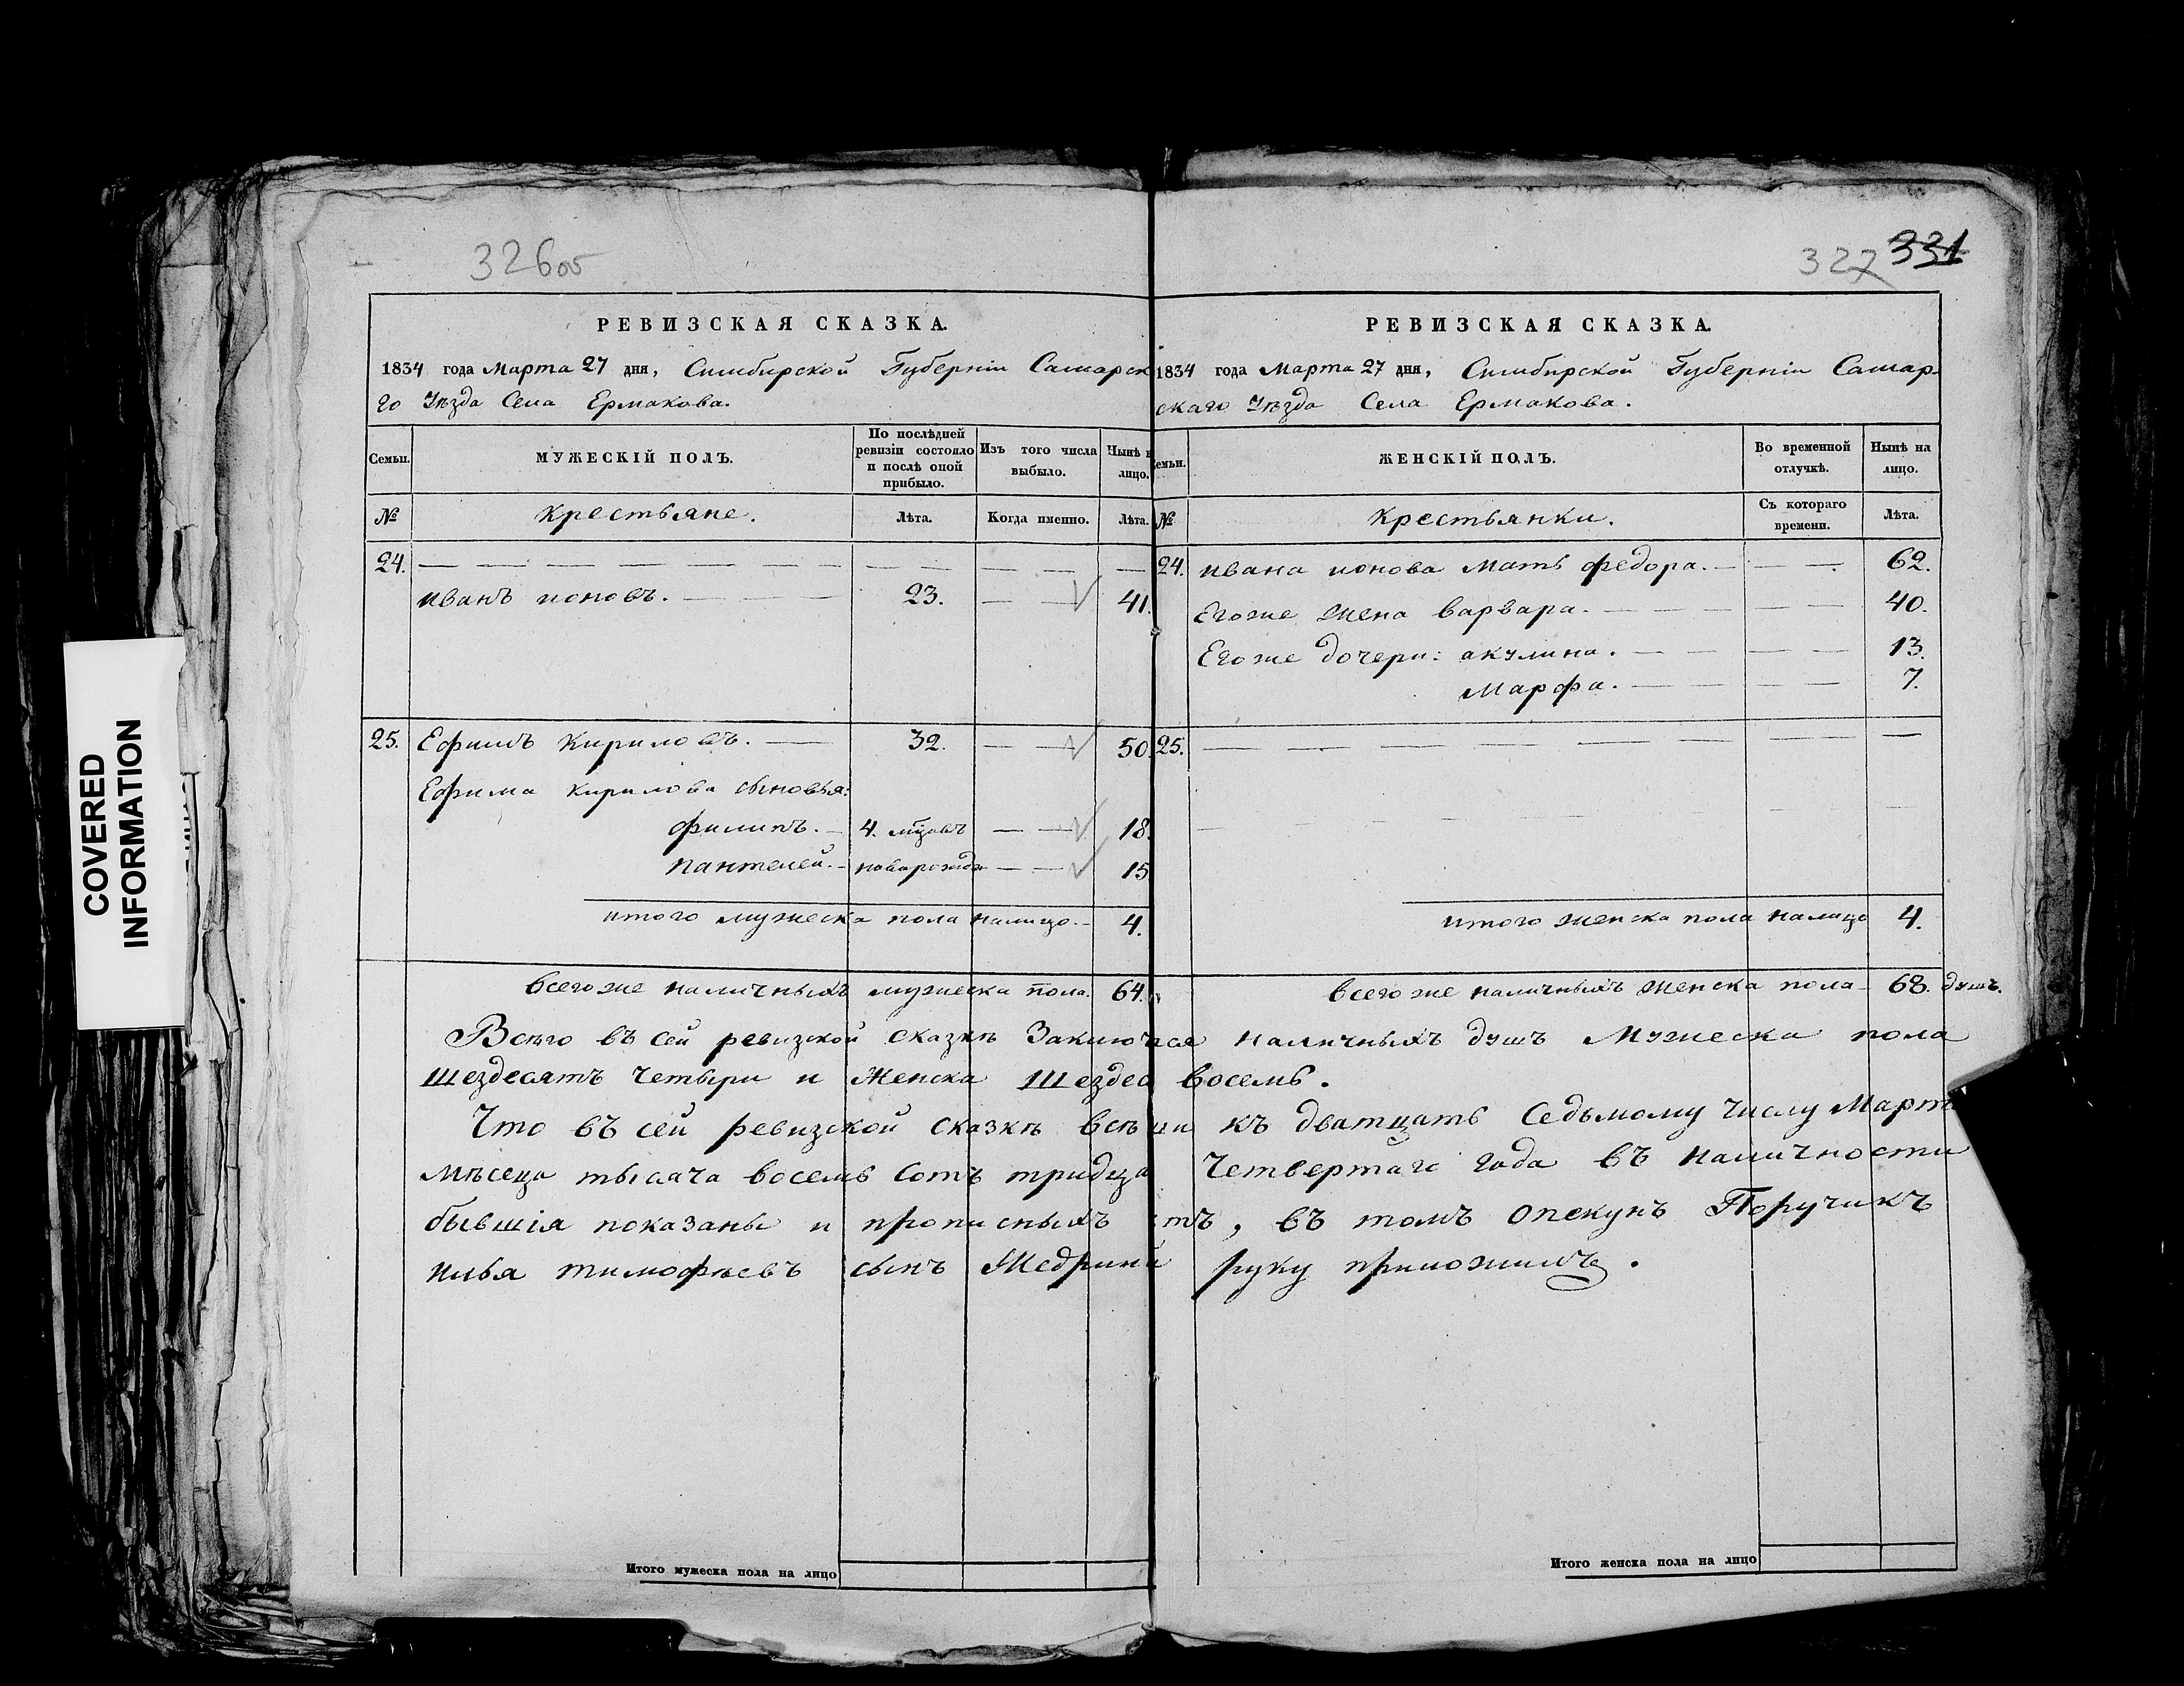 326об
РЕВИЗСКАЯ СКАЗКА.
1834 года Марта 27 дня, Симбирской Губерніи Самарск
го Уѣзда Села Ермакова.
Семьи. МУЖЕСКІЙ ПОЛЪ. По послѣдней ревизіи состояло и послѣ оной прибыло. Изъ того числа выбыло. Нынѣ н лицо.
№ Крестьяне. Лѣта. Когда именно. Лѣта.
24. — — — — — — — — —
иванъ ионовъ. — — 23. — — 41.
25. Ефимъ Кириловъ. — 32. — — 50
Ефима Кирилова сыновья:
филипъ. — 4. мцовъ — — 18.
пантелей. — новорожд — — 15
итого мужеска пола налицо. 4.
всего же наличныхъ мужеска пола. 64.
327 331
РЕВИЗСКАЯ СКАЗКА.
1834 года Марта 27 дня, Симбирской Губерніи Самар-
скаго Уѣзда Села Ермакова.
Семьи. ЖЕНСКІЙ ПОЛЪ. Во временной отлучкѣ. Нынѣ на лицо.
№ Крестьянки. Съ котораго времени. Лѣта.
24. ивана ионова мать федора. — — 62.
Егоже жена варвара. — — 40.
Егоже дочери: акулина. — — 13.
Марфа. — — 7.
25. — — — — — — — —
итого женска пола налицо 4.
всего же наличныхъ женска пола 68. душъ.
Всѣго въ сей ревизкой сказкѣ Заключися наличныхъ душъ Мужеска пола
Шездесятъ четыри и Женска Шездес восемь.
Что въ сей ревизской сказкѣ всѣ ци къ дватцать Седьмому числу Март
мѣсеца тысяча восемь сотъ тридца четвертаго года въ наличности
бывшія показаны и прописныхъ тъ, въ томъ опекунъ Поручикъ
илья тимофѣевъ сынъ Жедрини руку приложилъ.
Итого мужеска пола на лицо
Итого женска пола на лицо
COVERED
INFORMATION